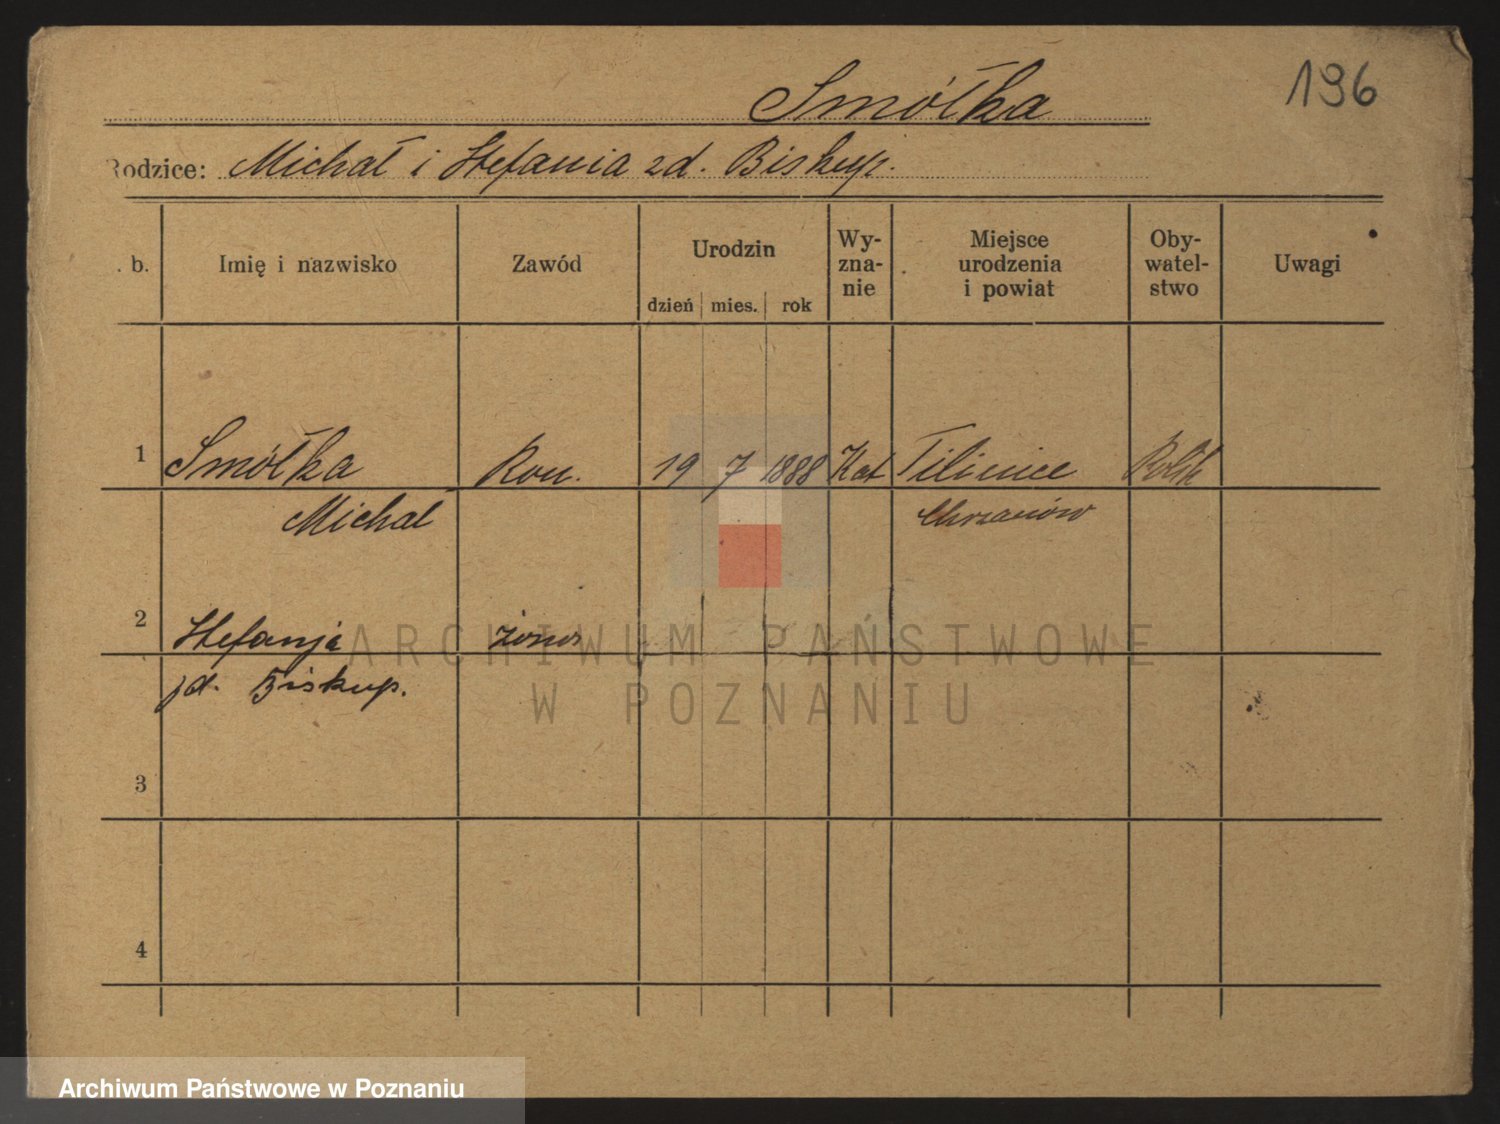 196
Smółka
Rodzice: Michał i Stefania zd. Biskup.
. b.
Imię i nazwisko
Zawód
Urodzin
dzień mies. rok
Wy-
zna-
nie
Miejsce
urodzenia
i powiat
Oby-
watel-
stwo
Uwagi
1 Smółka 19 7 1888 Kat
Michał Chrzanów
2 Stefanja żona
zd. Biskup.
3
4
ARCHIWUM PAŃSTWOWE
W POZNANIU
Archiwum Państwowe w Poznaniu